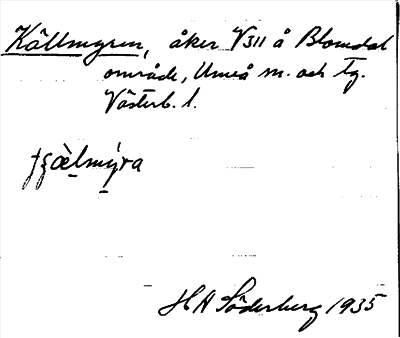 Källmyren, åker V311 å Blomdal
område, Umeå sn. och tg.
Västerb. l.
tjæ̀lmýra
H A Söderberg 1935